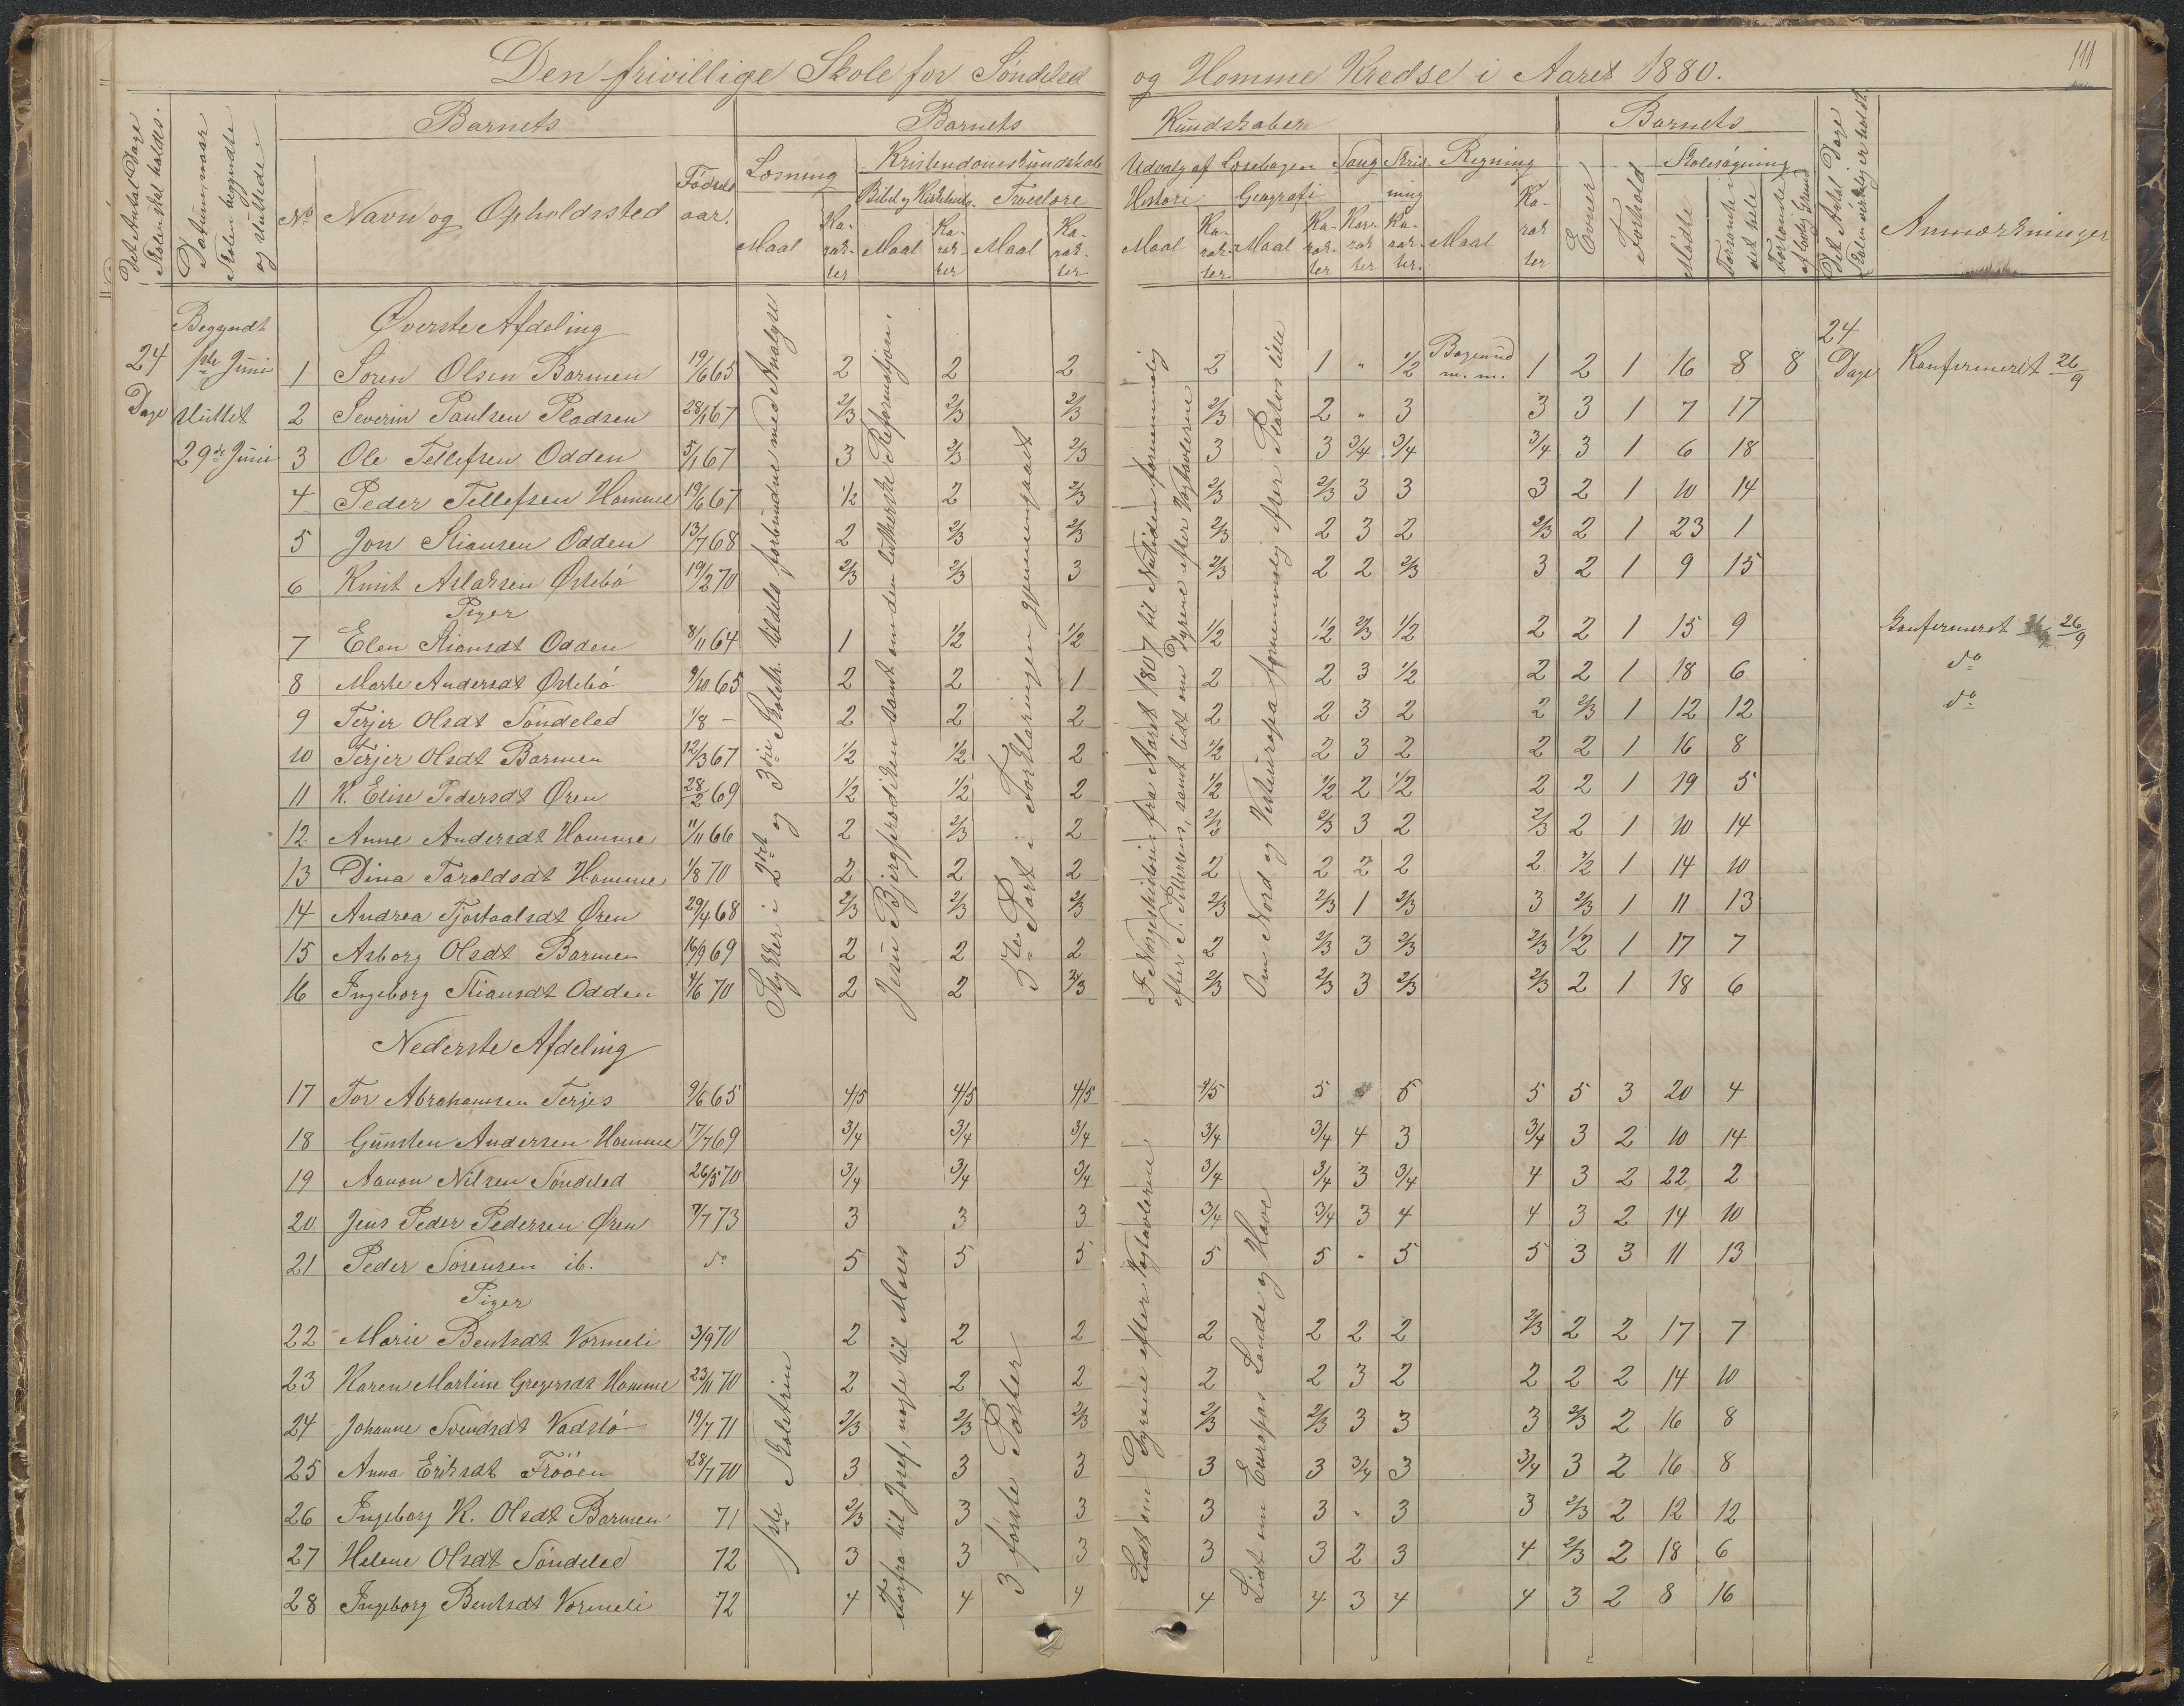 Den frivillige Skole for Søndeled og Homme Kredse i Aaret 1880.
111
Det Antal Dage Skolen skal holdes.
Datum, naar Skolen begyndte og sluttede.
Barnets
No
Navn og Opholdssted
Fødsels aar.
Barnets Kundskaber
Læsning
Maal
Karakter
Kristendomskundskab
Bibel og Kirkehist.
Maal
Karakter
Troeslære
Maal
Karakter
Udvalg af Læsebogen
Historie
Maal
Karakter
Geografi
Maal
Karakter
Sang
Karakter
Skrivning
Karakter
Regning
Maal
Karakter
Barnets
Evner
Forhold
Skolesøgning
Mødte
Forsømte i det hele
Forsømte af lovlig Grund
Det Antal Dage Skolen virkelig er holdt.
Anmærkninger
Begyndt
Øverste Afdeling
24 Dage
1ste Juni
sluttet
29de Juni
1 Søren Olsen Barmen 19/6 65 2 2 2 2 1 " 1/2 Bogen ud m.m. 1 2 1 16 8 8 24 Dage Konfirmeret 26/9
2 Severin Paulsen Pladsen 28/1 67 2/3 2/3 2/3 2/3 2 " 3 3 3 1 7 17
3 Ole Tellefsen Odden 5/1 67 3 2/3 2/3 3 3 3/4 3/4 3/4 3 1 6 18
4 Peder Tellefsen Homme 19/6 67 1/2 2 2/3 2/3 2/3 3 3 3 2 1 10 14
5 Jon Stiansen Odden 13/7 68 2 2/3 2/3 2/3 2 3 2 2/3 2 1 23 1
6 Knut Aslaksen Østebø 19/2 70 2/3 2/3 3 2/3 2 2 2/3 3 2 1 9 15
Piger
7 Elen Stiansdt Odden 8/11 64 1 1/2 1/2 1/2 1/2 2/3 1/2 2 2 1 15 9 Konfirmeret 26/9
8 Marte Andersdt Østebø 9/10 65 2 2 1 2 2 3 1/2 2 2 1 18 6 do
9 Terjer Olsdt Søndeled 1/8 – 2 2 2 2 2 3 2 2 2/3 1 12 12 do
10 Terjer Olsdt Barmen 12/3 67 1/2 1/2 2 1/2 2 3 2 2 2 1 16 8
11 K. Elise Pedersdt Øren 28/2 69 1/2 1/2 2 1/2 1/2 2 1/2 2 2 1 19 5
12 Anne Andersdt Homme 11/11 66 2 2/3 2 2/3 2/3 3 2 2/3 2 1 10 14
13 Dina Taraldsdt Homme 1/8 70 2 2 2 2 2 2 2 2 1/2 1 14 10
14 Andrea Tjostaalsdt Øren 29/4 68 2/3 2/3 2/3 2/3 2/3 1 2/3 3 2/3 1 11 13
15 Asborg Olsdt Barmen 16/9 69 2 2 2 2 2/3 3 2/3 2/3 1/2 1 17 7
16 Ingeborg Stiansdt Odden 4/6 70 2 2 2/3 2/3 2/3 3 2/3 2/3 2 1 18 6
Stykker i 2det og 3die Skoletr. tildels forbundne med Analyse
Jesu Bjergprædiken samt om den lutherske Reformasjon.
3die Part i Forklaringen gjennemgaaet
I Norgeshistorien fra Aaret 1807 til Nutiden fornemmelig efter S. Petersens, samt lidt om Dyrene efter Vægtavlerne
Om Nord og Vesteuropa fornemmelig efter Statos lille
Nederste Afdeling
17 Tor Abrahamsen Terjes 9/6 65 4/5 4/5 4/5 4/5 5 5 5 5 3 20 4
18 Gunsten Andersen Homme 17/7 69 3/4 3/4 3/4 3/4 3/4 4 3 3/4 3 2 10 14
19 Aanon Nilsen Søndeled 26/5 70 3/4 3/4 3/4 3/4 3/4 3 3/4 4 3 2 22 2
20 Jens Peder Pedersen Øren 7/7 73 3 3 3 3/4 3/4 3 4 4 3 2 14 10
21 Peder Sørensen ib. do 5 5 5 5 5 " 5 5 3 3 11 13
Piger
22 Marie Bentsdt Vormeli 3/9 70 2 2 2 2 2 2 2 2/3 2 2 17 7
23 Karen Martine Gregersdt Homme 23/11 70 2 2 2 2 2 3 2 2 2 2 14 10
24 Johanne Svendsdt Vadslø 19/7 71 2/3 2/3 2/3 2/3 2/3 3 3 3 2/3 2 16 8
25 Anna Eriksdt Frøøen 28/7 70 3 3 3 3 3 3/4 3 3/4 3 2 16 8
26 Ingeborg K. Olsdt Barmen 71 2/3 3 3 3 3 " 3 3 2/3 2 12 12
27 Helene Olsdt Søndeled 72 3 3 3 3 3 2 3 4 2/3 2 18 6
28 Ingeborg Bentsdt Vormeli 72 4 4 4 4 4 3 4 4 3 2 8 16
1ste Skoletrin
Forfra til Josef, nogle til Moses
3 første Parter
Lidt om Dyrene efter Vægtavlerne
Lidt om Europas Lande og Have